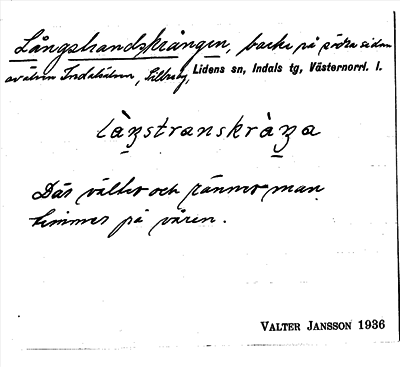 Långstrandskrången, backe på södra sidan
av älven Indalsälven, Lillberg, Lidens sn, Indals tg, Västernorrl. l.
làŋstranskràŋa
Där välter och ränner man
timmer på våren.
VALTER JANSSON 1936